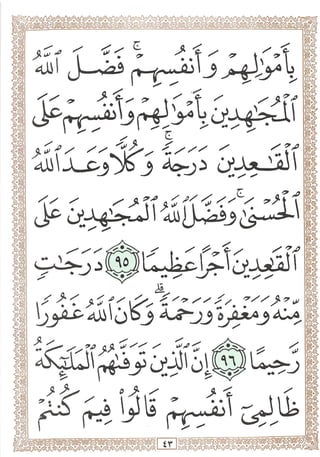 بِأَمْوَٰلِهِمْ وَأَنفُسِهِمْ ۚ فَضَّلَ ٱللَّهُ
ٱلْمُجَـٰهِدِينَ بِأَمْوَٰلِهِمْ وَأَنفُسِهِمْ عَلَى
ٱلْقَـٰعِدِينَ دَرَجَةً ۚ وَكُلًّا وَعَدَ ٱللَّهُ
ٱلْحُسْنَىٰ ۚ وَفَضَّلَ ٱللَّهُ ٱلْمُجَـٰهِدِينَ عَلَى
ٱلْقَـٰعِدِينَ أَجْرًا عَظِيمًا ٩٥ دَرَجَـٰتٍ
مِّنْهُ وَمَغْفِرَةً وَرَحْمَةً ۚ وَكَانَ ٱللَّهُ غَفُورًا
رَّحِيمًا ٩٦ إِنَّ ٱلَّذِينَ تَوَفَّىٰهُمُ ٱلْمَلَـٰٓئِكَةُ
ظَالِمِىٓ أَنفُسِهِمْ قَالُوا۟ فِيمَ كُنتُمْ
٤٣